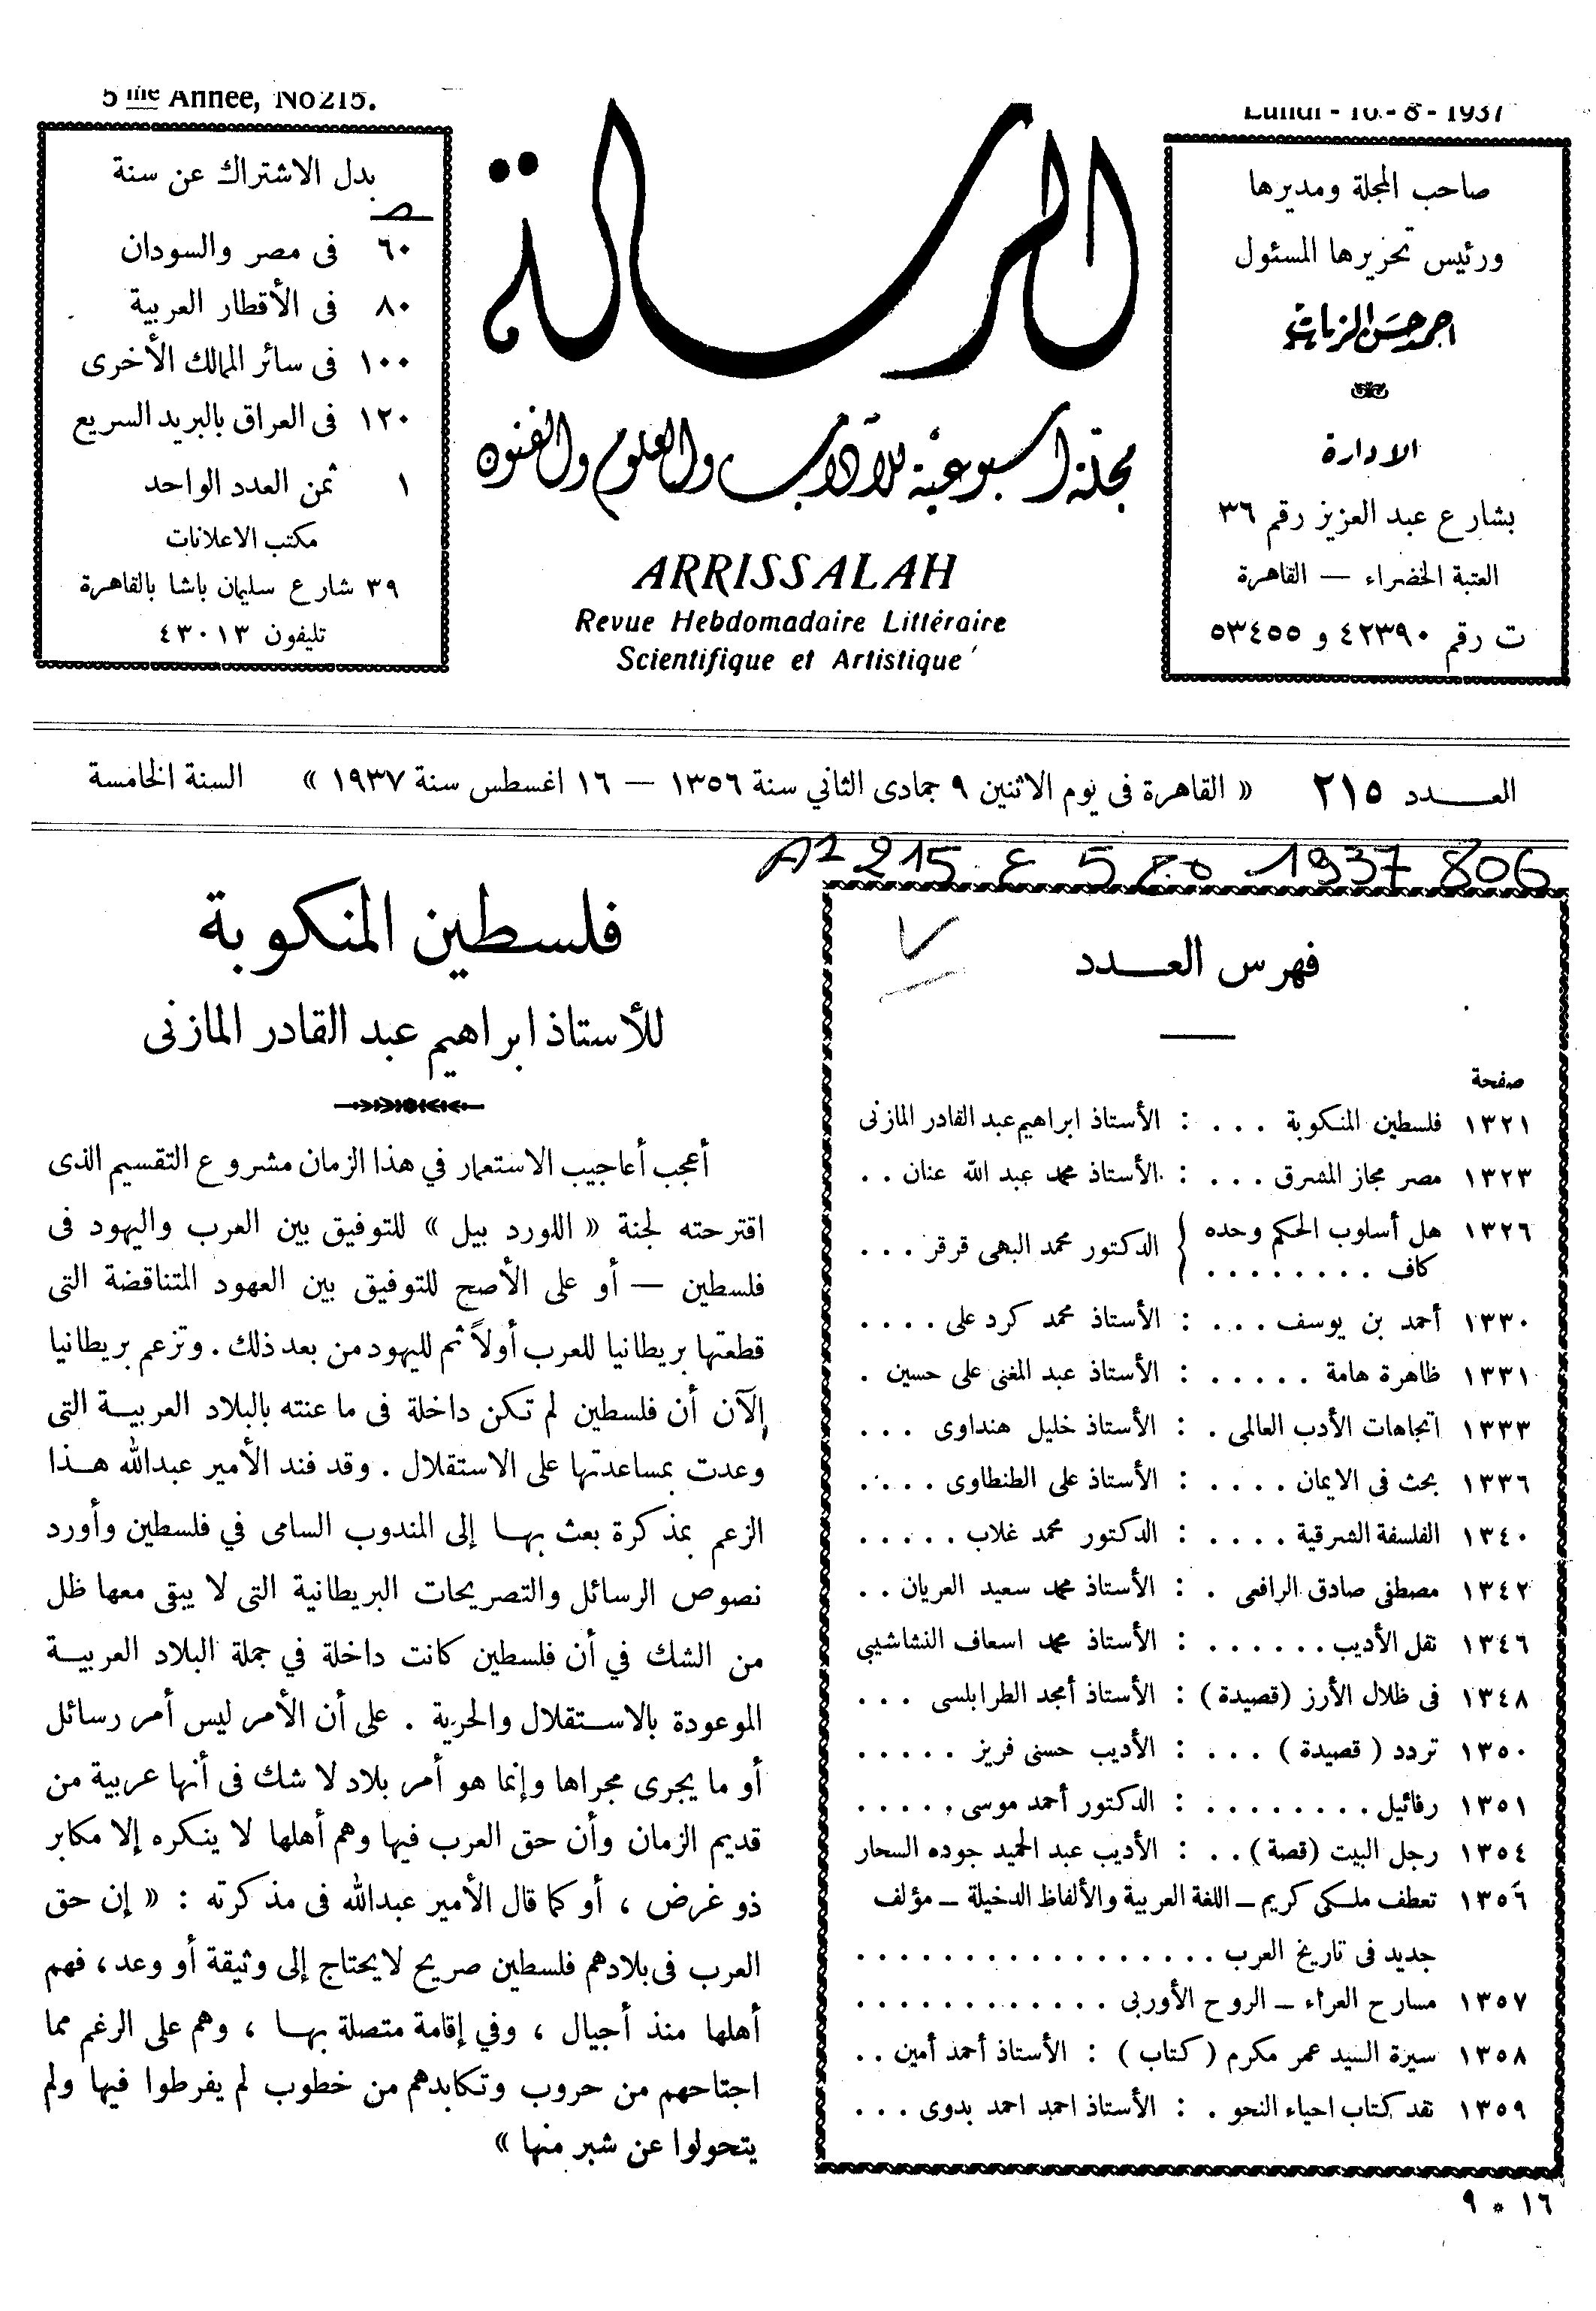 5 me Année, No 215.
Lundi - 16 - 8 - 1937
صاحب المجلة ومديرها
ورئيس تحريرها المسئول
احمد حسن الزيات
الادارة
بشارع عبد العزيز رقم ٣٦
العتبة الخضراء — القاهرة
ت رقم ٤٢٣٩٠ و ٥٣٤٥٥
الرسالة
مجلة أسبوعية للآداب والعلوم والفنون
ARRISSALAH
Revue Hebdomadaire Littéraire
Scientifique et Artistique
بدل الاشتراك عن سنة
ص
٦٠ فى مصر والسودان
٨٠ فى الأقطار العربية
١٠٠ فى سائر الممالك الأخرى
١٢٠ فى العراق بالبريد السريع
١ ثمن العدد الواحد
مكتب الاعلانات
٣٩ شارع سليمان باشا بالقاهرة
تليفون ٤٣٠١٣
العـــدد ٢١٥ « القاهرة فى يوم الاثنين ٩ جمادى الثاني سنة ١٣٥٦ — ١٦ اغسطس سنة ١٩٣٧ » السنة الخامسة
فهرس العـــدد
صفحة
١٣٢١ فلسطين المنكوبة . . . : الأستاذ ابراهيم عبد القادر المازنى
١٣٢٣ مصر مجاز المشرق . . . : الأستاذ محمد عبد الله عنان . .
١٣٢٦ هل أسلوب الحكم وحده
كاف . . . . . . . . } الدكتور محمد البهى قرقر . . .
١٣٣٠ أحمد بن يوسف . . . : الأستاذ محمد كرد على . . . .
١٣٣١ ظاهرة هامة . . . . . : الأستاذ عبد المغنى على حسين .
١٣٣٣ اتجاهات الأدب العالمى . : الأستاذ خليل هنداوى . . .
١٣٣٦ بحث فى الايمان . . . . : الأستاذ على الطنطاوى . . . .
١٣٤٠ الفلسفة الشرقية . . . . : الدكتور محمد غلاب . . . . .
١٣٤٢ مصطفى صادق الرافعى . : الأستاذ محمد سعيد العريان . .
١٣٤٦ نقل الأديب . . . . . . : الأستاذ محمد اسعاف النشاشيبى
١٣٤٨ فى ظلال الأرز (قصيدة) : الأستاذ أمجد الطرابلسى . . .
١٣٥٠ تردد ( قصيدة ) . . . : الأديب حسنى فريز . . . . .
١٣٥١ رفائيل . . . . . . . . : الدكتور أحمد موسى . . . . .
١٣٥٤ رجل البيت (قصة) . . : الأديب عبد الحميد جوده السحار
١٣٥٦ تعطف ملكى كريم – اللغة العربية والألفاظ الدخيلة – مؤلف
جديد فى تاريخ العرب . . . . . . . . . . . . . . . .
١٣٥٧ مسارح العراء – الروح الأوربى . . . . . . . . . . . .
١٣٥٨ سيرة السيد عمر مكرم ( كتاب ) : الأستاذ أحمد أمين . .
١٣٥٩ نقد كتاب احياء النحو . : الأستاذ احمد احمد بدوى . . .
١٦ * ٩
فلسطين المنكوبة
للأستاذ ابراهيم عبد القادر المازنى
أعجب أعاجيب الاستعمار في هذا الزمان مشروع التقسيم الذى
اقترحته لجنة « اللورد بيل » للتوفيق بين العرب واليهود فى
فلسطين — أو على الأصح للتوفيق بين العهود المتناقضة التى
قطعتها بريطانيا للعرب أولاً ثم لليهود من بعد ذلك . وتزعم بريطانيا
الآن أن فلسطين لم تكن داخلة فى ما عنته بالبلاد العربيـة التى
وعدت بمساعدتها على الاستقلال . وقد فند الأمير عبدالله هـذا
الزعم بمذكرة بعث بهـا إلى المندوب السامى في فلسطين وأورد
نصوص الرسائل والتصريحات البريطانية التى لا يبقى معها ظل
من الشك في أن فلسطين كانت داخلة في جملة البلاد العربيـة
الموعودة بالاسـتقلال والحرية . على أن الأمر ليس أمر رسائل
أو ما يجرى مجراها وإنما هو أمر بلاد لا شك فى أنها عربية من
قديم الزمان وأن حق العرب فيها وهم أهلها لا ينكره إلا مكابر
ذو غرض ، أو كما قال الأمير عبدالله فى مذكرته : « إن حق
العرب فى بلادهم فلسطين صريح لايحتاج إلى وثيقة أو وعد ، فهم
أهلها منذ أجيال ، وفي إقامة متصلة بهـا ، وهم على الرغم مما
اجتاحهم من حروب وتكابدهم من خطوب لم يفرطوا فيها ولم
يتحولوا عن شبر منها »